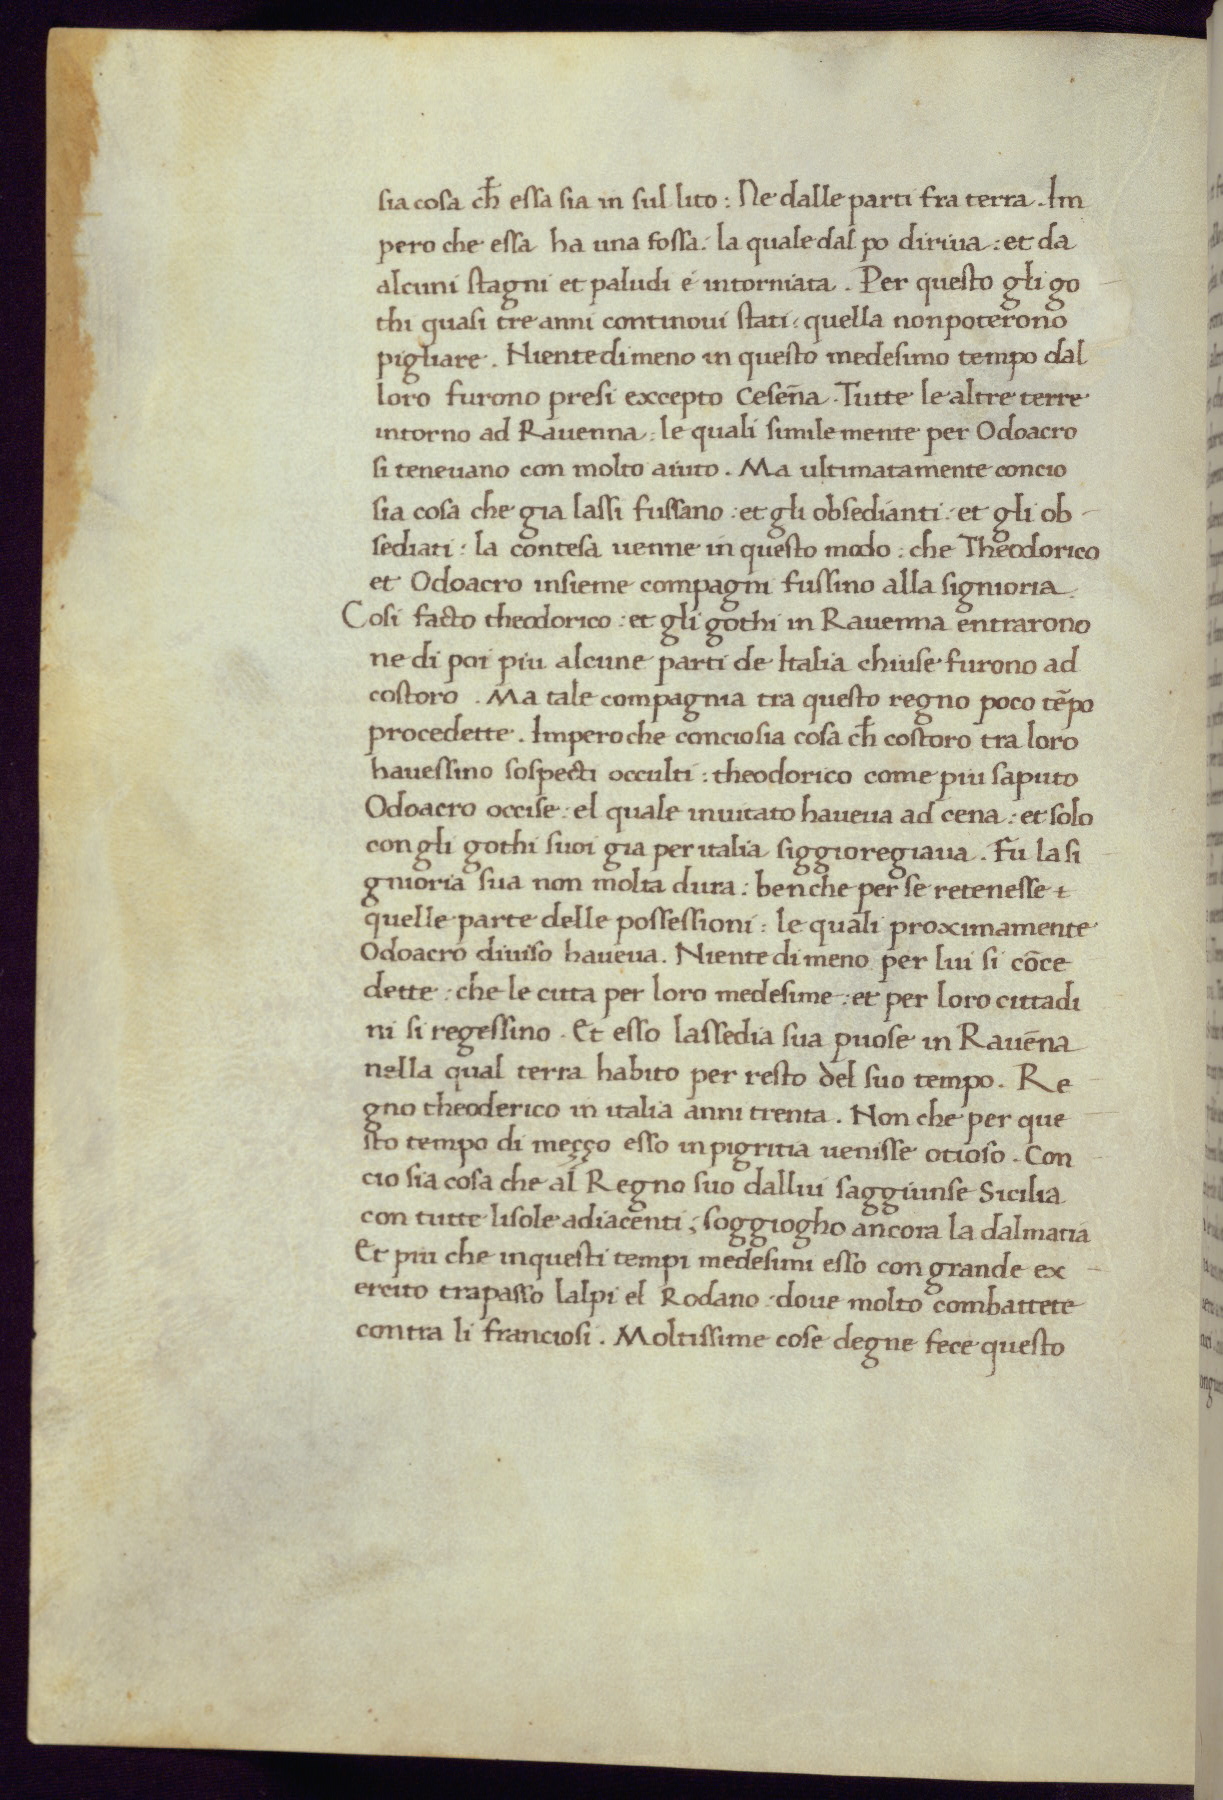 sia cosa ch̄ essa sia in sul lito : Ne dalle parti fra terra . Im
pero che essa ha una fossa : la quale dal po diriua : et da
alcuni stagni et paludi é intorniata . Per questo gli go
thi quasi tre anni continoui stati : quella non poterono
pigliare . Niente di meno in questo medesimo tempo dal
loro furono presi excepto Ceseña . Tutte le altre terre
intorno ad Rauenna : le quali simile mente per Odoacro
si teneuano con molto aiuto . Ma ultimatamente concio
sia cosa che gia lassi fussano : et gli obsedianti : et gli ob
sediati : la contesa uenne in questo modo : che Theodorico
et Odoacro insieme compagni fussino alla signioria .
Cosi facto theodorico : et gli gothi in Rauenna entrarono
ne di poi piu alcune parti de Italia chiuse furono ad
costoro . Ma tale compagnia tra questo regno poco tēpo
procedette . Impero che concio sia cosa ch̄ costoro tra loro
hauessino sospecti occulti : theodorico come piu saputo
Odoacro occise : el quale inuitato haueua ad cena : et solo
con gli gothi suoi gia per italia siggioregiaua . Fu la si
gnioria sua non molta dura : ben che per se retenesse
quelle parte delle possessioni : le quali proximamente
Odoacro diuiso haueua . Niente di meno per lui si cōce
dette : che le citta per loro medesime : et per loro cittadi
ni si regessino . Et esso lassedia sua puose in Rauēna
nella qual terra habito per resto del suo tempo . Re
gno theoderico in italia anni trenta . Non che per que
sto tempo di meçço esso in pigritia uenisse otioso . Con
cio sia cosa che al Regno suo dallui saggiunse Sicilia
con tutte lisole adiacenti ; soggiogho ancora la dalmatia
Et piu che in questi tempi medesimi esso con grande ex
ercito trapasso lalpi el Rodano : doue molto combattete
contra li franciosi . Moltissime cose degne fece questo